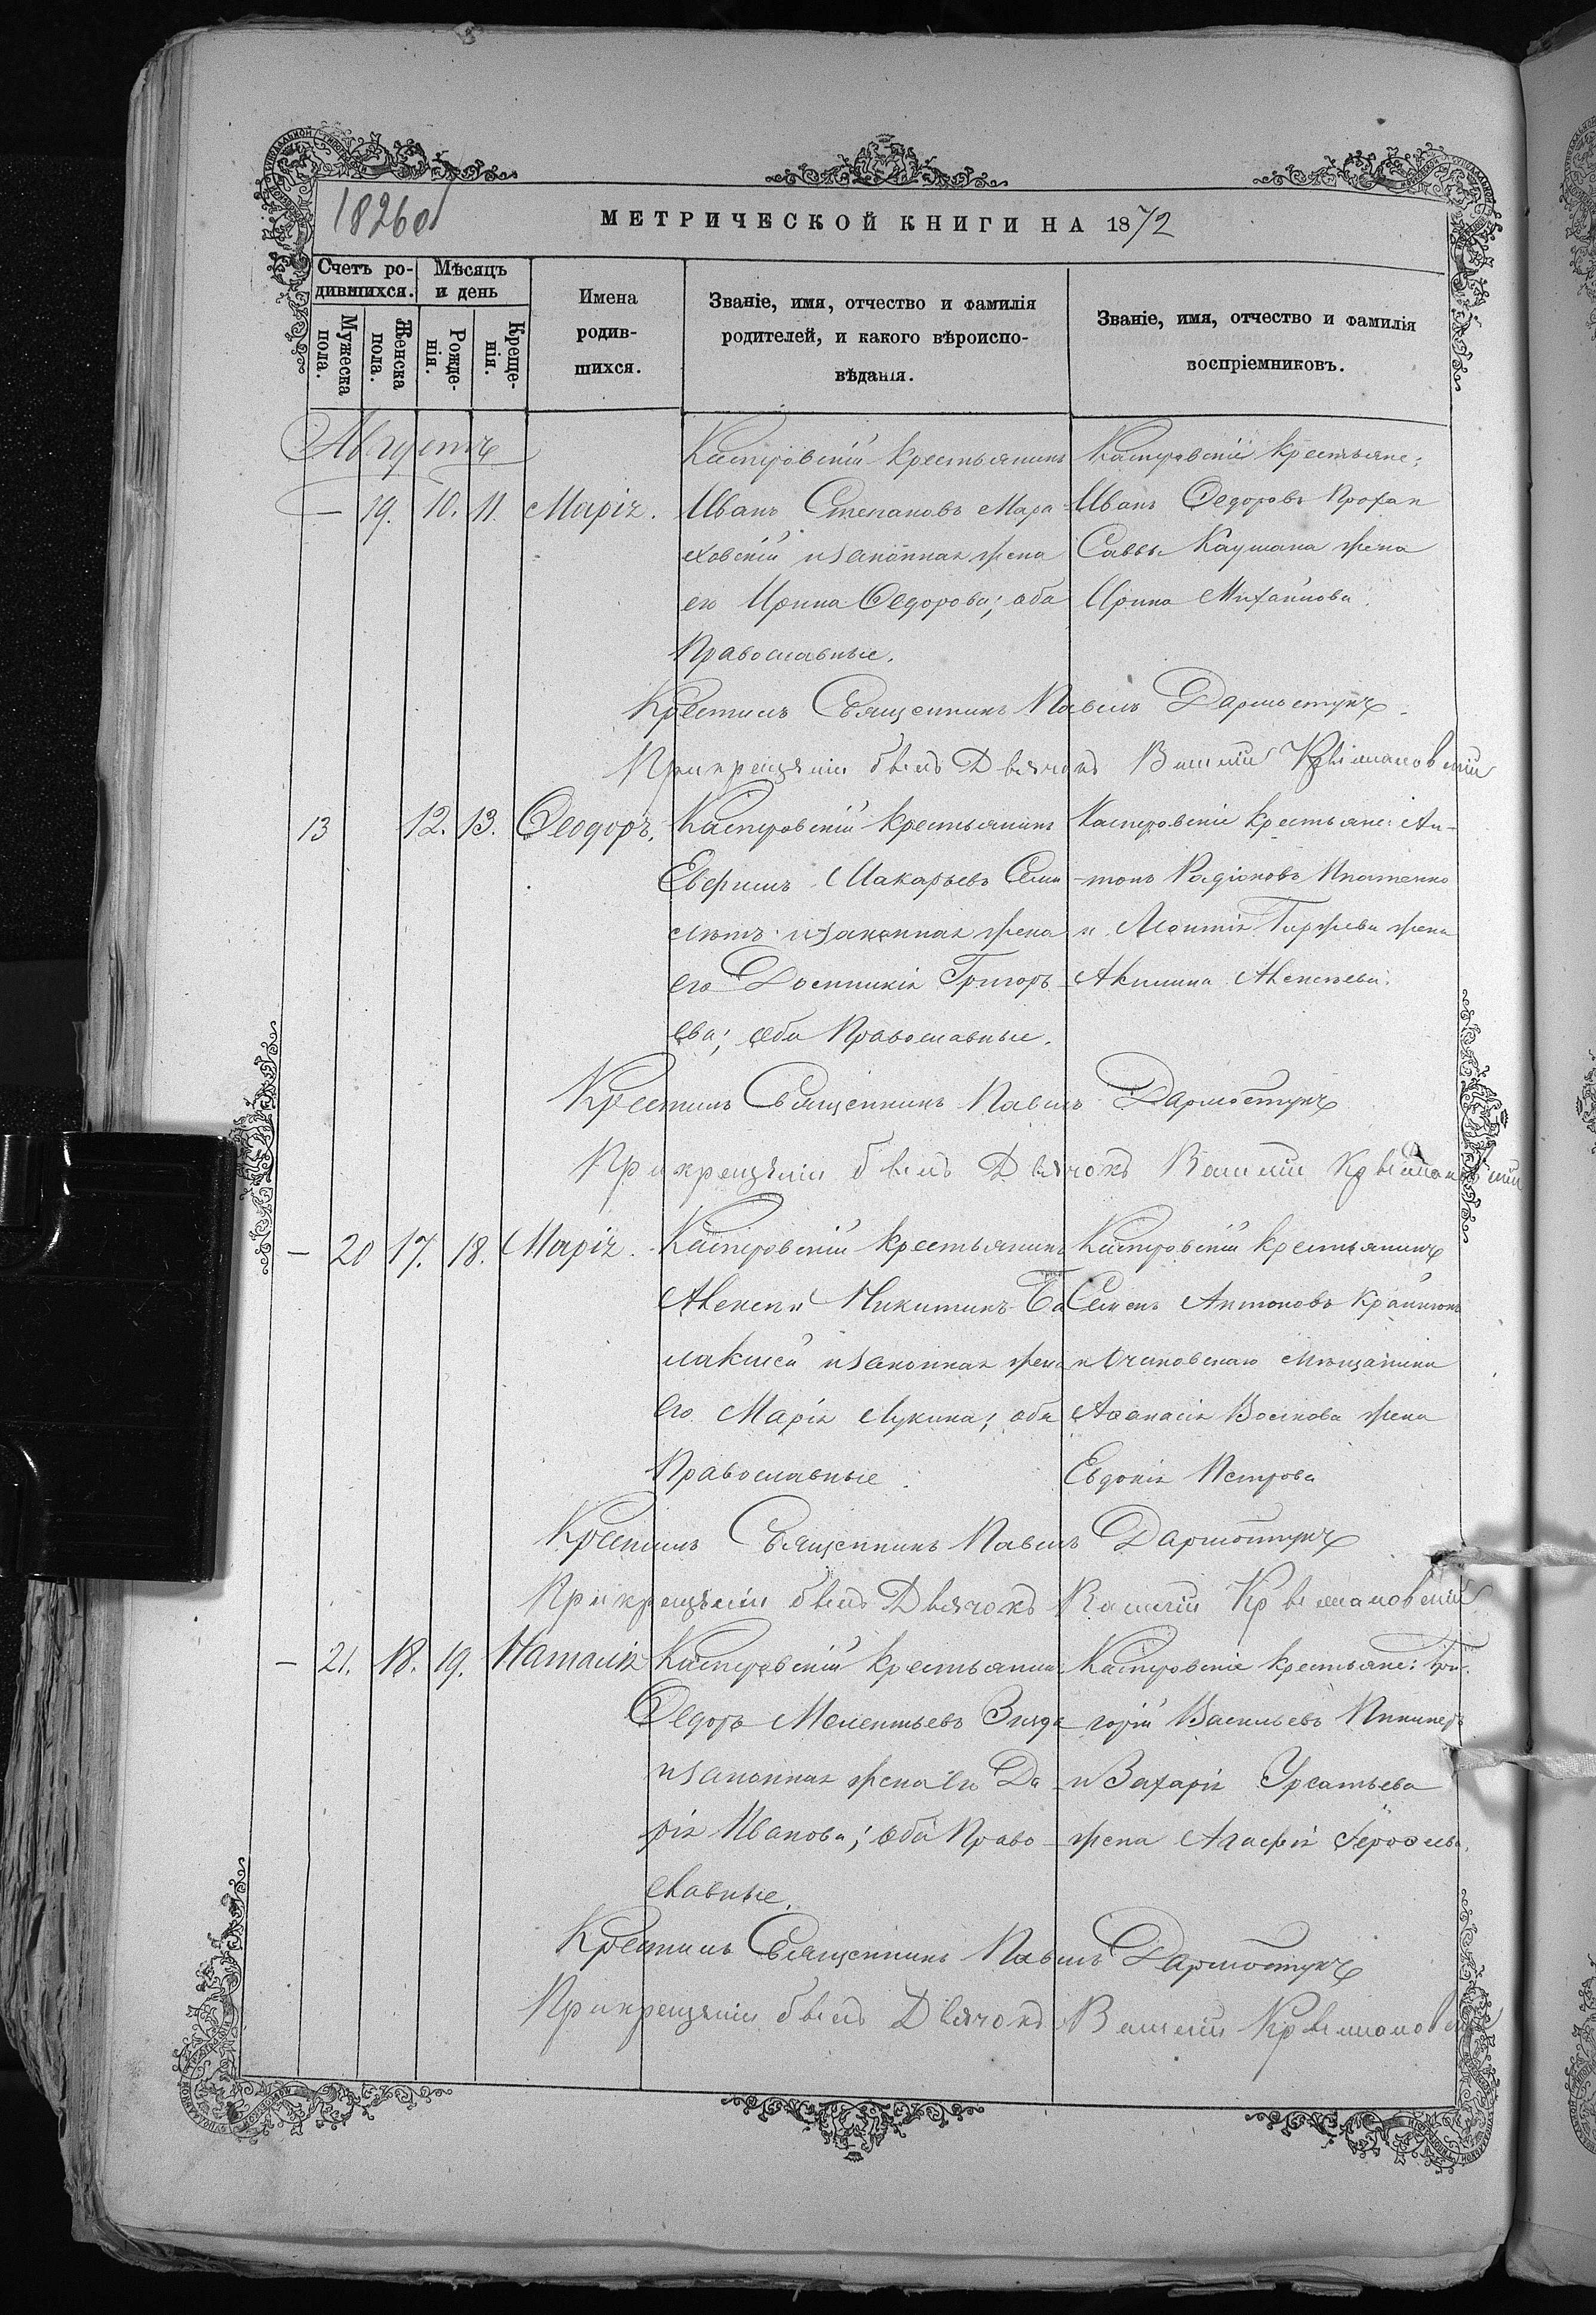 1826об
МЕТРИЧЕСКОЙ КНИГИ НА 1872
Счетъ ро-
дившихся.
Мѣсяцъ
и день
Мужеска
пола.
Женска
пола.
Рожде-
нія.
Креще-
нія.
Имена
родив-
шихся.
Званіе, имя, отчество и фамилія
родителей, и какого вѣроиспо-
вѣданія.
Званіе, имя, отчество и фамилія
воспріемниковъ.
Августъ
— 19. 10. 11. Марія.
Касперовскій крестьянинъ
Иванъ Степановъ Мара-
ховскій и законная жена
его Ирина Ѳедорова; оба
Православные.
Касперовскіе крестьяне:
Иванъ Ѳедоровъ
Саввы Каушана жена
Ирина Михайлова.
Крестилъ Священникъ Павелъ Дармостукъ
При крещеніи былъ Дьячокъ Василій
13 12. 13. Ѳеодоръ.
Касперовскій крестьянинъ
Евфимъ Макарьевъ Сем
и законная жена
его Доминикія Григорь-
ева; оба Православные.
Касперовскіе крестьяне: Ан-
-тонъ Радіоновъ Игнатенко
и Леонтія жена
Акилина Алексѣева.
Крестилъ Священникъ Павелъ Дармостукъ
При крещеніи былъ Дьячокъ Василій
— 20 17. 18. Марія.
Касперовскій крестьянинъ
Алексѣй Никитинъ Ба
лакчей и законная жена
его Марія Лукина; оба
Православные
Касперовскій крестьянинъ
Семенъ Антоновъ
и Очаковскаго мѣщанина
Аѳанасія Волкова жена
Евдокія Петрова
Крестилъ Священникъ Павелъ Дармостукъ
При крещеніи былъ Дьячокъ Василій
— 21. 18. 19. Наталія
Касперовскій крестьянинъ
Ѳедоръ Мелентьевъ
и законная жена его Да-
рія Иванова; оба Право-
славные.
Касперовскіе крестьяне: Гри-
горій Васильевъ
и Захарія Урсатьева
жена Агафія
Крестилъ Священникъ Павелъ Дармостукъ
При крещеніи былъ Дьячокъ Василій